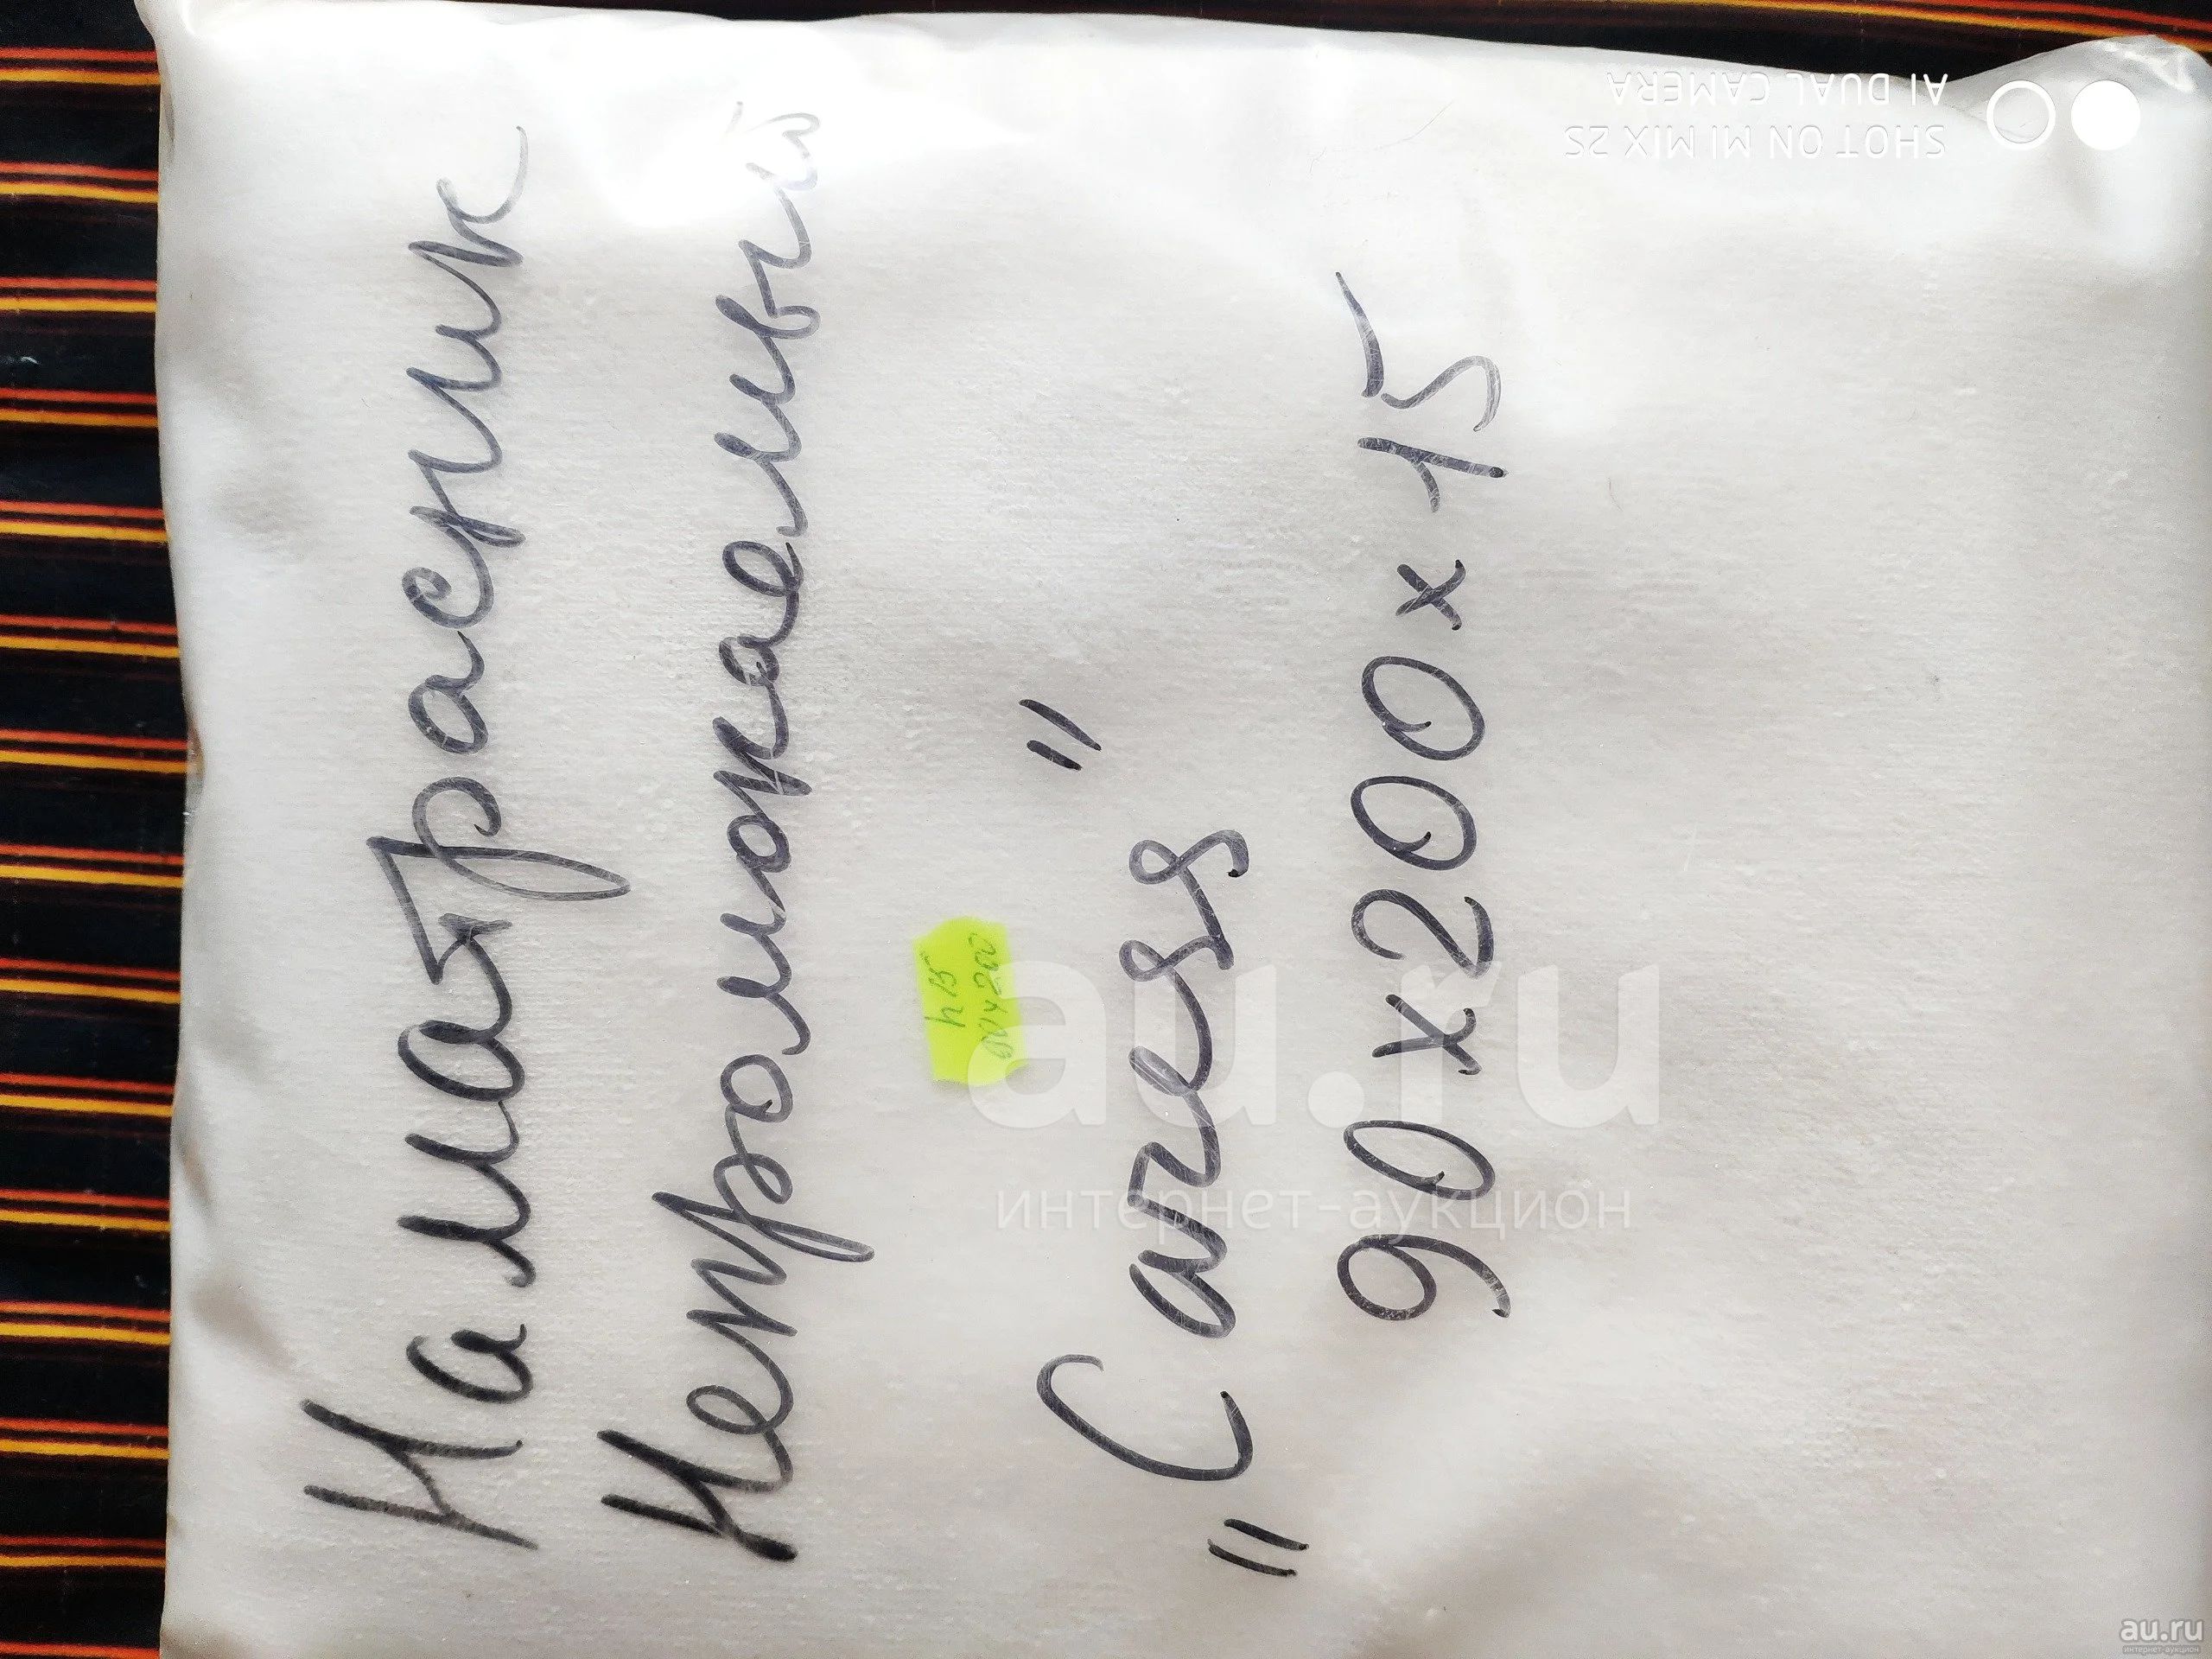 Наматрасник
Непромокаемый
h 15
90х200
"Caress"
90х200х15
SHOT ON MI MIX 2S
AI DUAL CAMERA
au.ru
интернет-аукцион
au.ru
интернет-аукцион